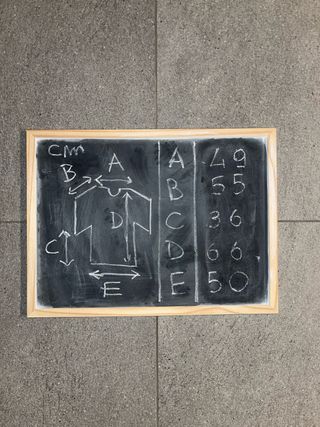 cm
A
B
D
C
E
A 49
B 55
C 36
D 66
E 50